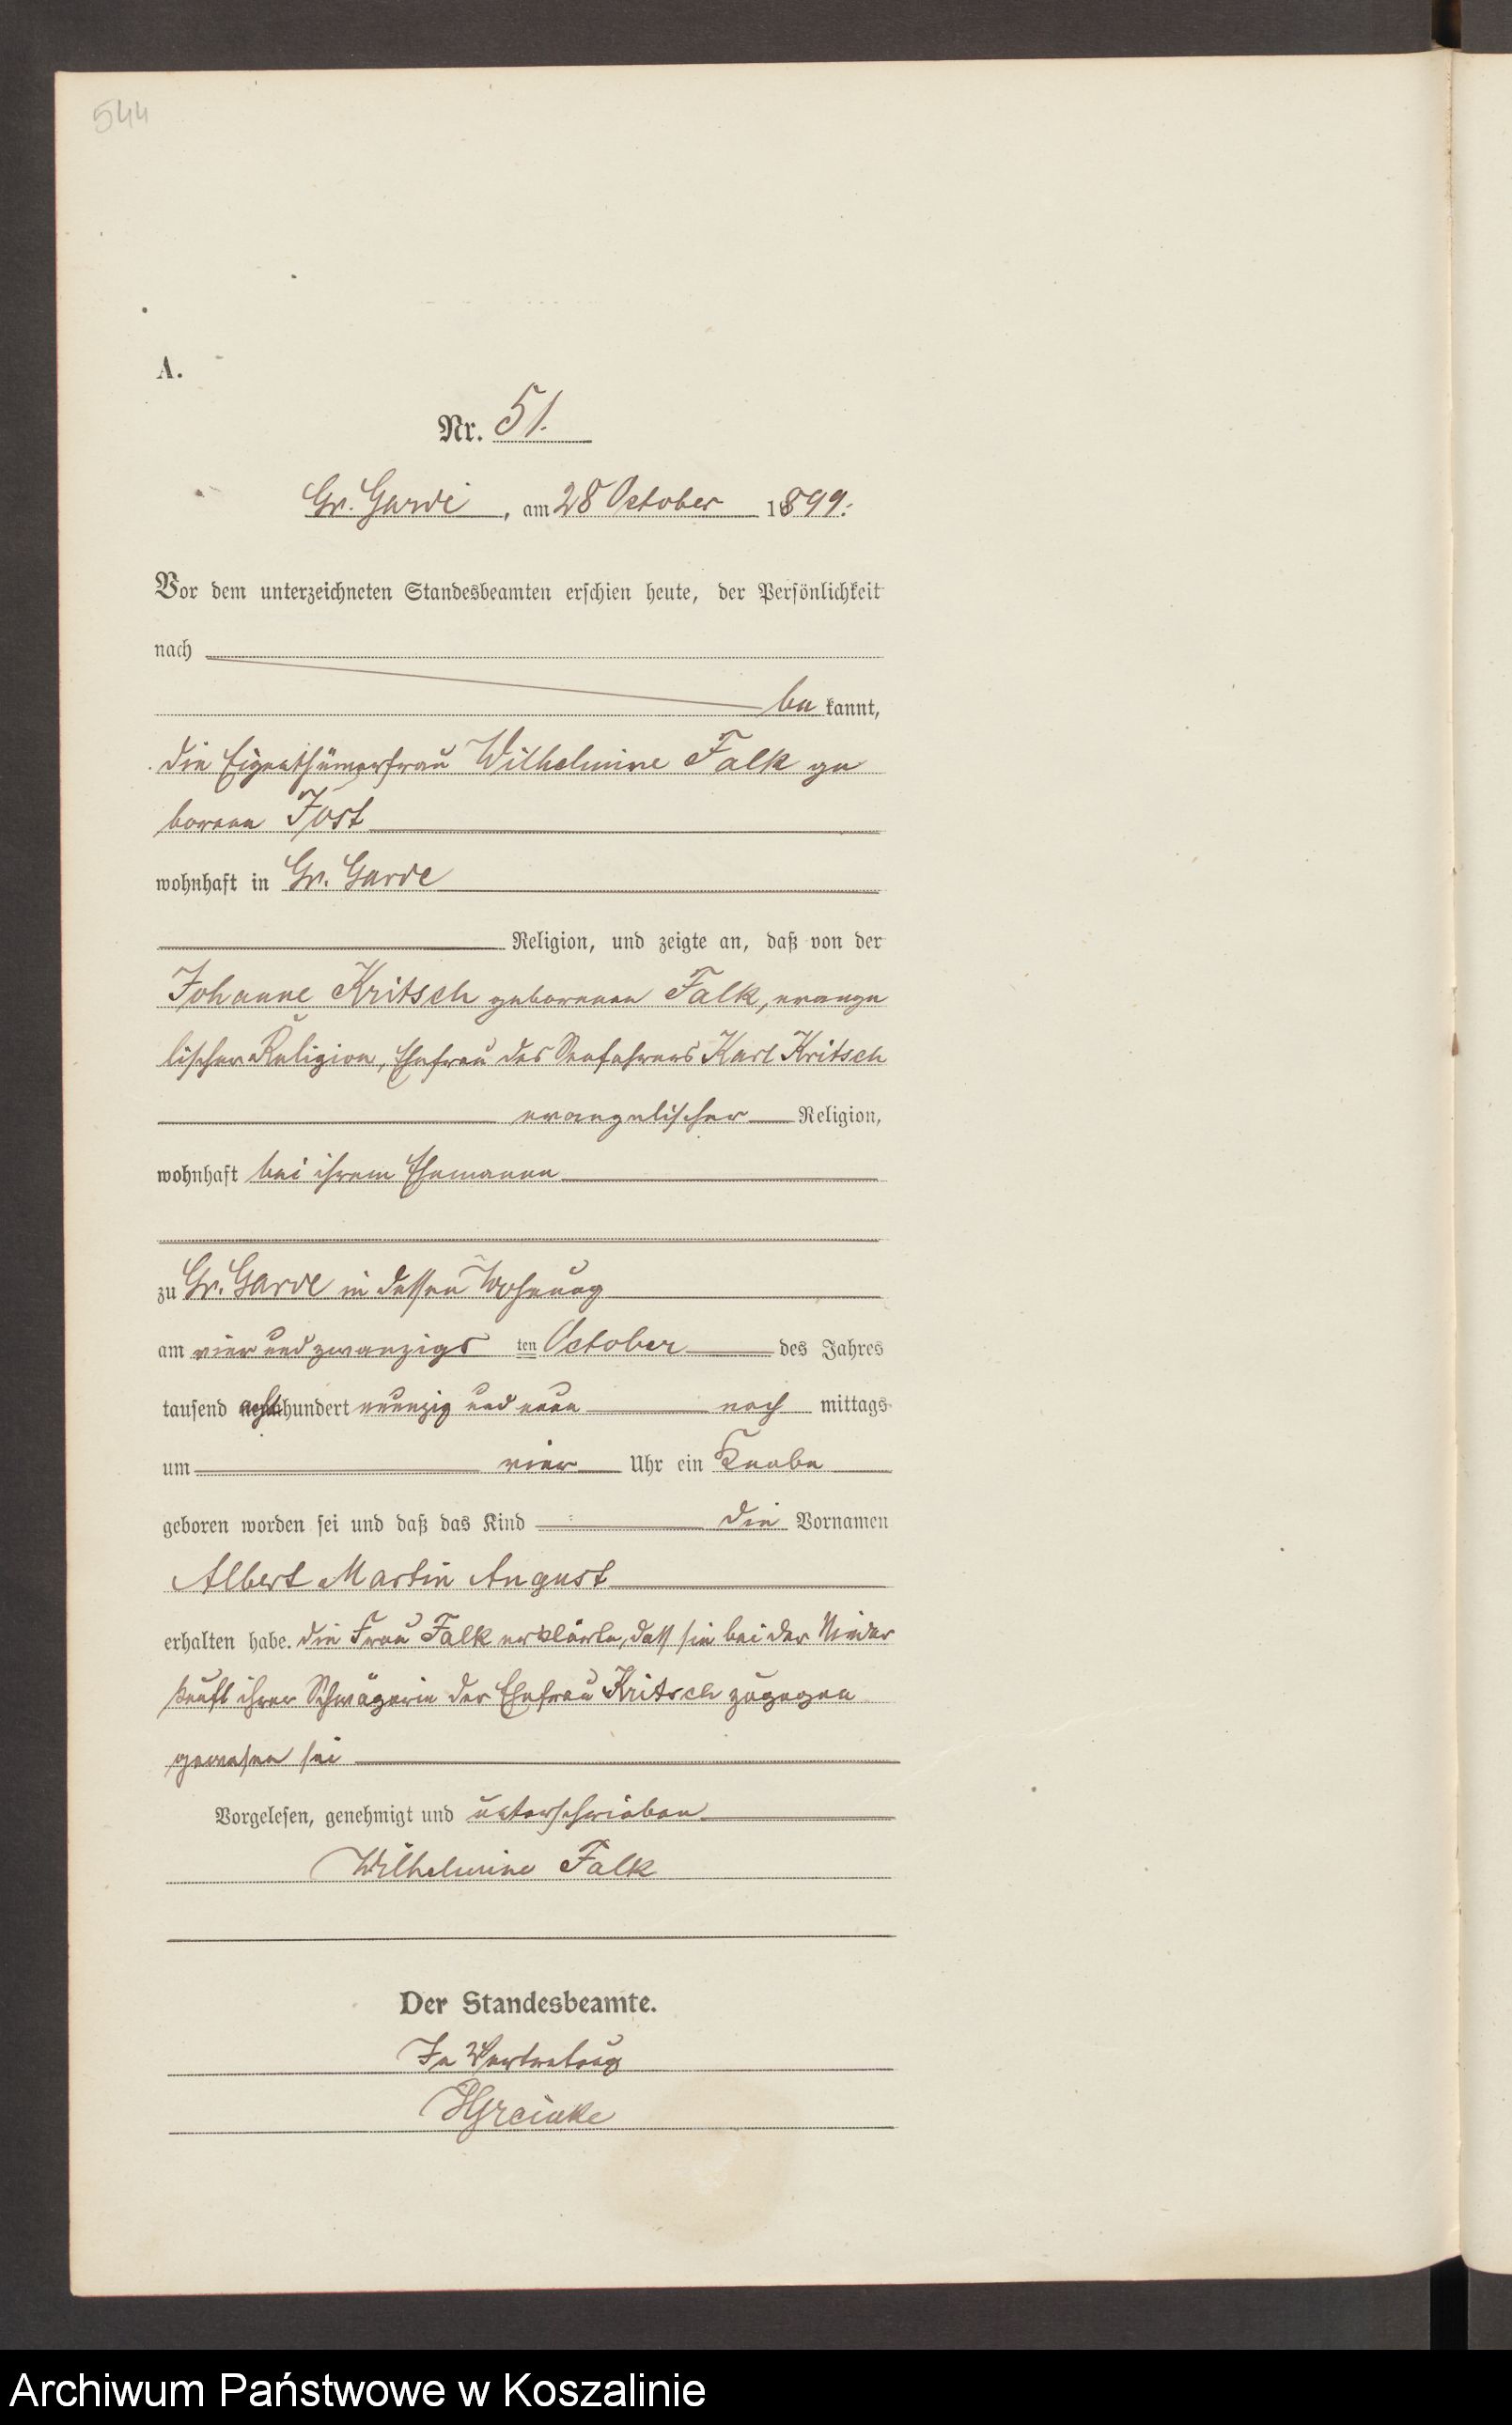 544
A.
Nr. 51.
Gr. Garde, am 28 October 1899.
Vor dem unterzeichneten Standesbeamten erschien heute, der Persönlichkeit
nach
be kannt,
die Eigenthümerfrau Wilhelmine Falk ge
borene Jost
wohnhaft in Gr. Garde
Religion, und zeigte an, daß von der
Johanne Kritsch geborenen Falk, evange
lischer Religion, Ehefrau des Seefahrers Karl Kritsch
evangelischer Religion,
wohnhaft bei ihrem Ehemanne
zu Gr. Garde in dessen Wohnung
am vier und zwanzigs ten October des Jahres
tausend achthundert neunzig und neun nach mittags
um vier Uhr ein Knabe
geboren worden sei und daß das Kind die Vornamen
Albert Martin August
erhalten habe. die Frau Falk erklärte, daß sie bei der Nieder
kunft ihrer Schwägerin der Ehefrau Kritsch zugegen
gewesen sei
Vorgelesen, genehmigt und unterschrieben
Wilhelmine Falk
Der Standesbeamte.
In Vertretung
Archiwum Państwowe w Koszalinie